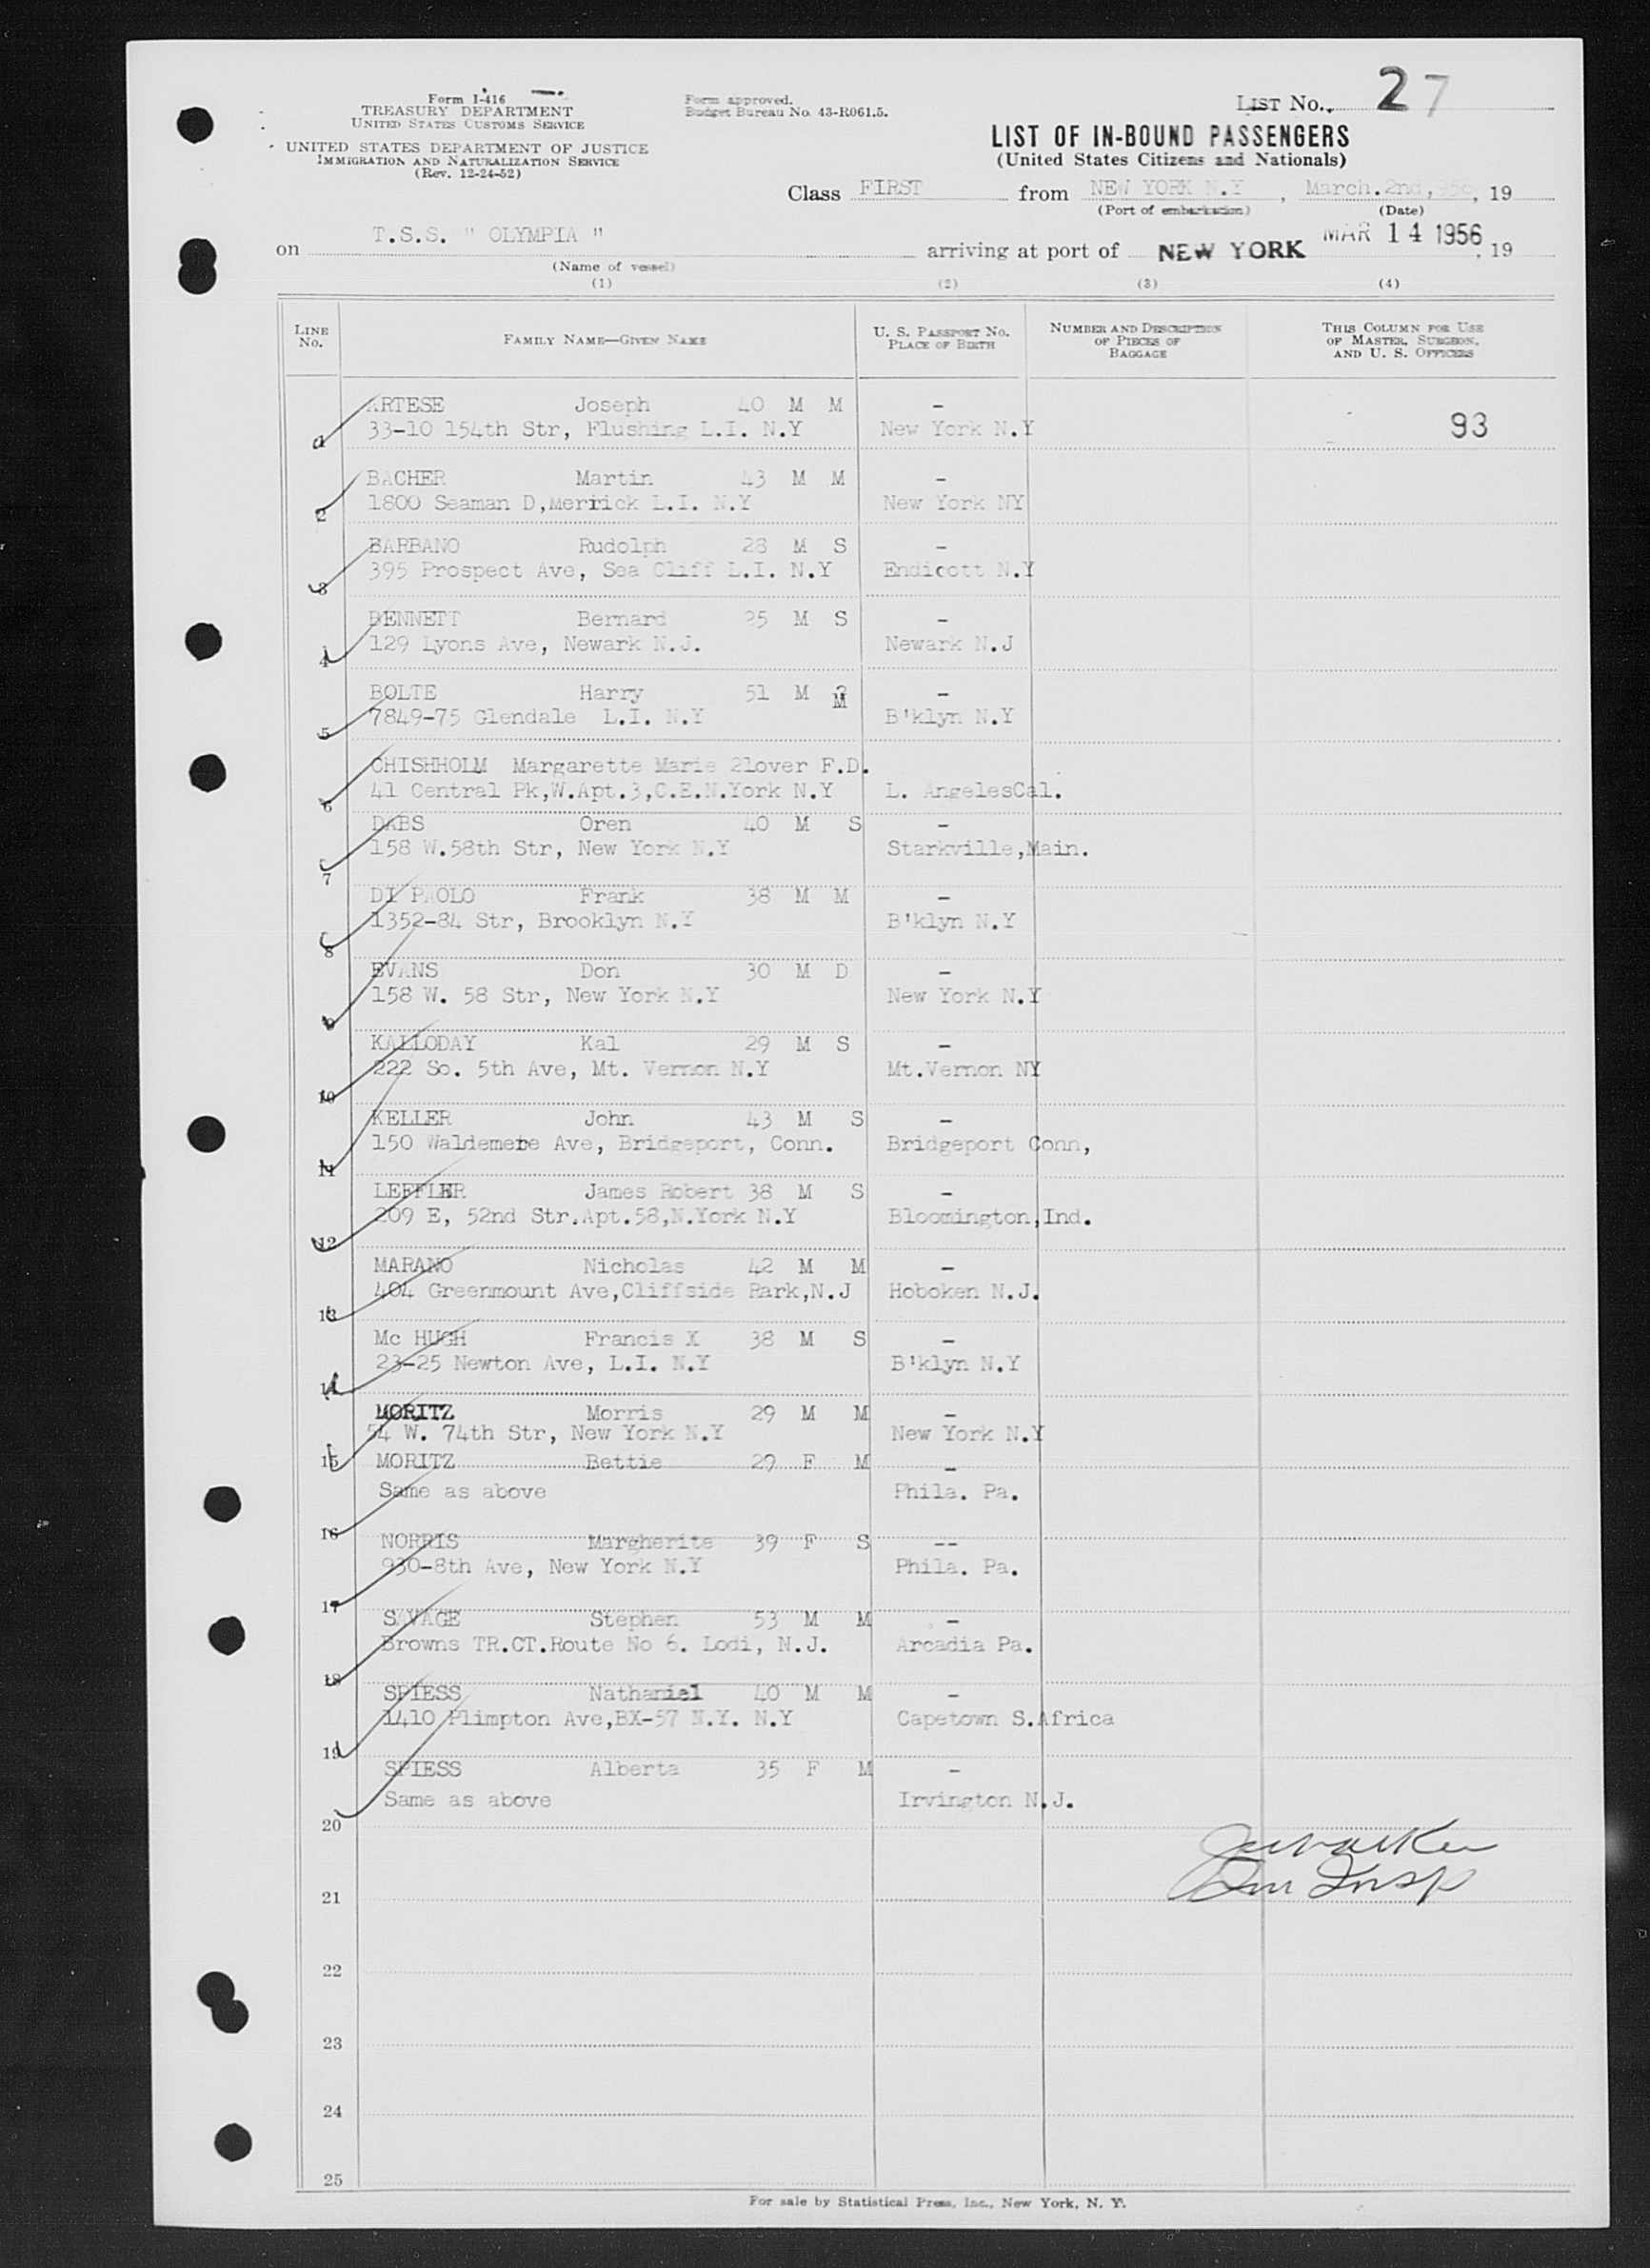 Form I-416
TREASURY DEPARTMENT
UNITED STATES CUSTOMS SERVICE
UNITED STATES DEPARTMENT OF JUSTICE
IMMIGRATION AND NATURALIZATION SERVICE
(Rev. 12-24-52)
Form approved.
Budget Bureau No. 43-R061.5.
LIST No. 27
LIST OF IN-BOUND PASSENGERS
(United States Citizens and Nationals)
Class FIRST from NEW YORK N.Y , March.2nd, , 19
(Port of embarkation) (Date)
on T.S.S. " OLYMPIA " arriving at port of NEW YORK MAR 14 1956, 19
(Name of vessel)
(1) (2) (3) (4)
LINE No. FAMILY NAME—GIVEN NAME U. S. PASSPORT No. PLACE OF BIRTH NUMBER AND DESCRIPTION OF PIECES OF BAGGAGE THIS COLUMN FOR USE OF MASTER, SURGEON, AND U. S. OFFICERS
ARTESE Joseph 40 M M -
33-10 154th Str, Flushing L.I. N.Y New York N.Y 93
BACHER Martin 43 M M -
2 1800 Seaman D,Merrick L.I. N.Y New York NY
BARBANO Rudolph 28 M S -
3 395 Prospect Ave, Sea Cliff L.I. N.Y Endicott N.Y
BENNETT Bernard 25 M S -
4 129 Lyons Ave, Newark N.J. Newark N.J
BOLTE Harry 51 M M -
5 7849-75 Glendale L.I. N.Y B'klyn N.Y
CHISHHOLM Margarette Marie 21over F.D.
6 41 Central Pk,W.Apt.3,C.E.N.York N.Y L. AngelesCal.
DABS Oren 40 M S -
158 W.58th Str, New York N.Y Starkville,Main.
7
DI PAOLO Frank 38 M M -
1352-84 Str, Brooklyn N.Y B'klyn N.Y
8
EVANS Don 30 M D -
158 W. 58 Str, New York N.Y New York N.Y
9
KALLODAY Kal 29 M S -
222 So. 5th Ave, Mt. Vernon N.Y Mt.Vernon NY
10
KELLER John 43 M S -
150 Waldemere Ave, Bridgeport, Conn. Bridgeport Conn,
11
LEFFLER James Robert 38 M S -
209 E, 52nd Str.Apt.58,N.York N.Y Bloomington,Ind.
12
MARANO Nicholas 42 M M -
404 Greenmount Ave,Cliffside Park,N.J Hoboken N.J.
13
Mc HUGH Francis X 38 M S -
23-25 Newton Ave, L.I. N.Y B'klyn N.Y
14
MORITZ Morris 29 M M -
54 W. 74th Str, New York N.Y New York N.Y
15 MORITZ Bettie 29 F M -
Same as above Phila. Pa.
16
NORRIS Margherite 39 F S --
930-8th Ave, New York N.Y Phila. Pa.
17
SAVAGE Stephen 53 M M -
Browns TR.CT.Route No 6. Lodi, N.J. Arcadia Pa.
18
SPIESS Nathaniel 40 M M -
1410 Plimpton Ave,BX-57 N.Y. N.Y Capetown S.Africa
19
SPIESS Alberta 35 F M -
Same as above Irvington N.J.
20
21
22
23
24
25
For sale by Statistical Press, Inc., New York, N. Y.